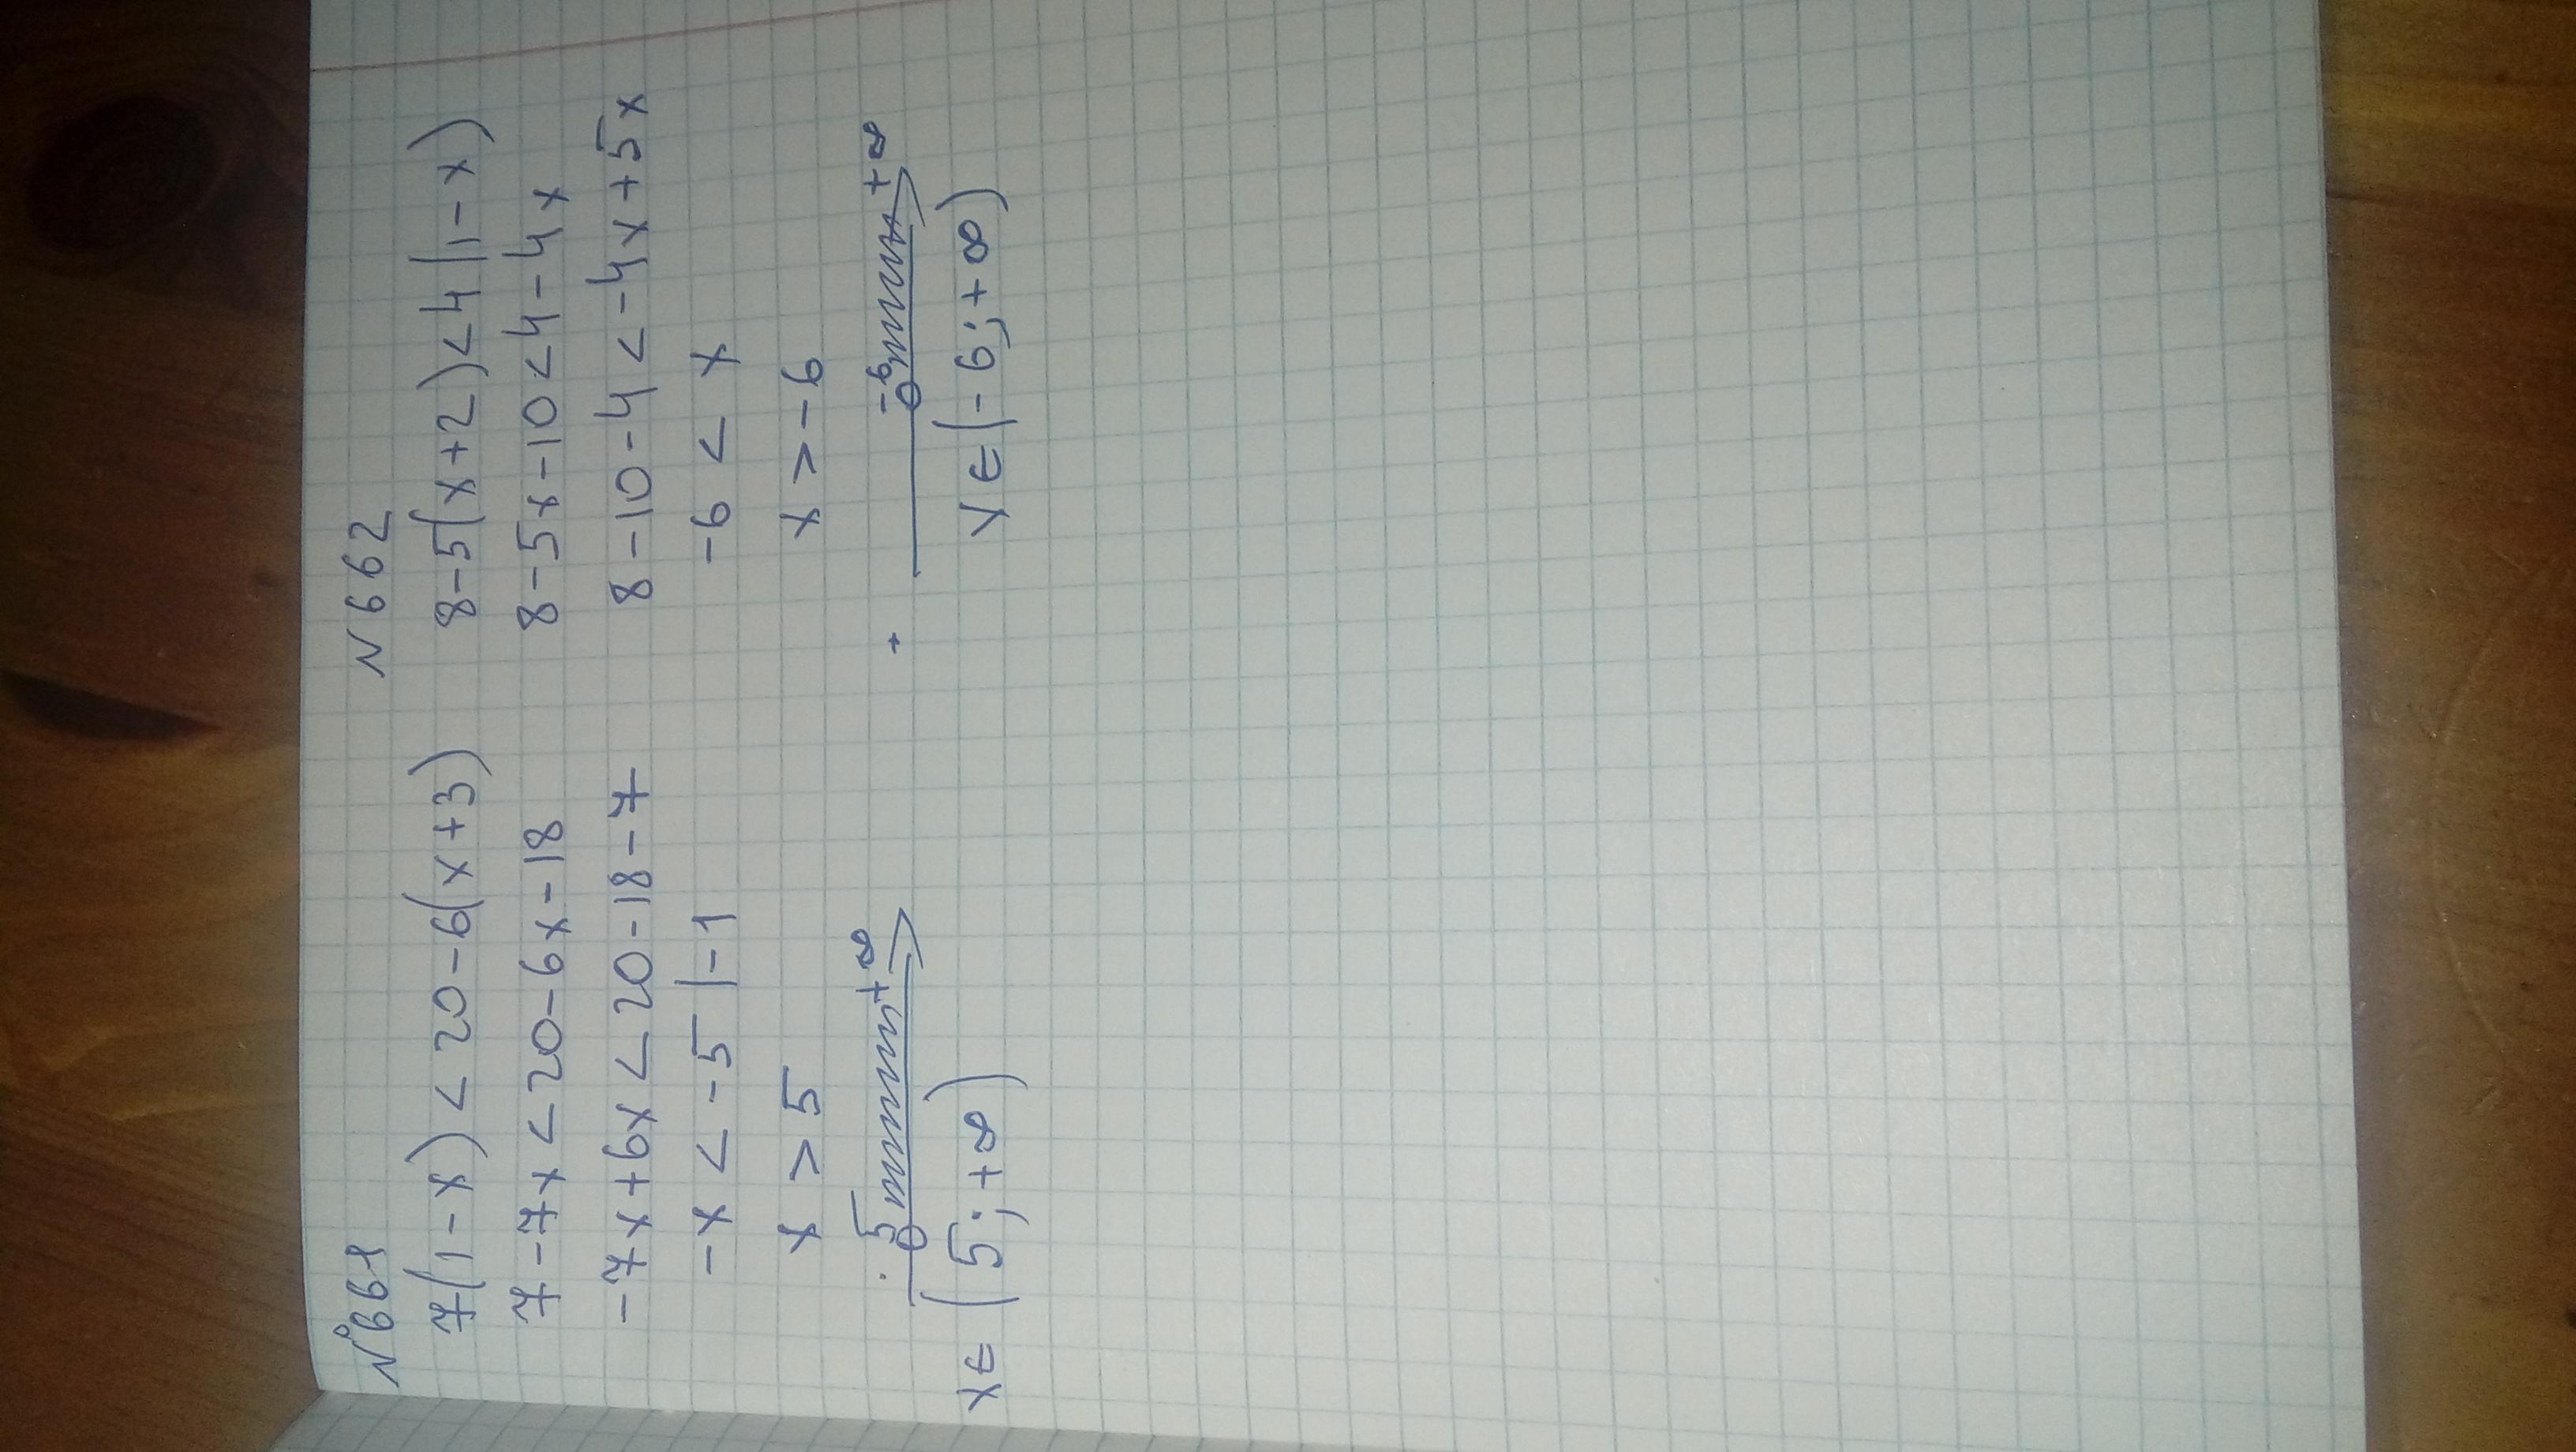 №661
7(1-x)<20-6(x+3)
7-7x<20-6x-18
-7x+6x<20-18-7
-x<-5 |-1
x>5
5 +∞
x∈(5;+∞)
N662
8-5(x+2)<4(1-x)
8-5x-10<4-4x
8-10-4<-4x+5x
-6<x
x>-6
-6 +∞
x∈(-6;+∞)